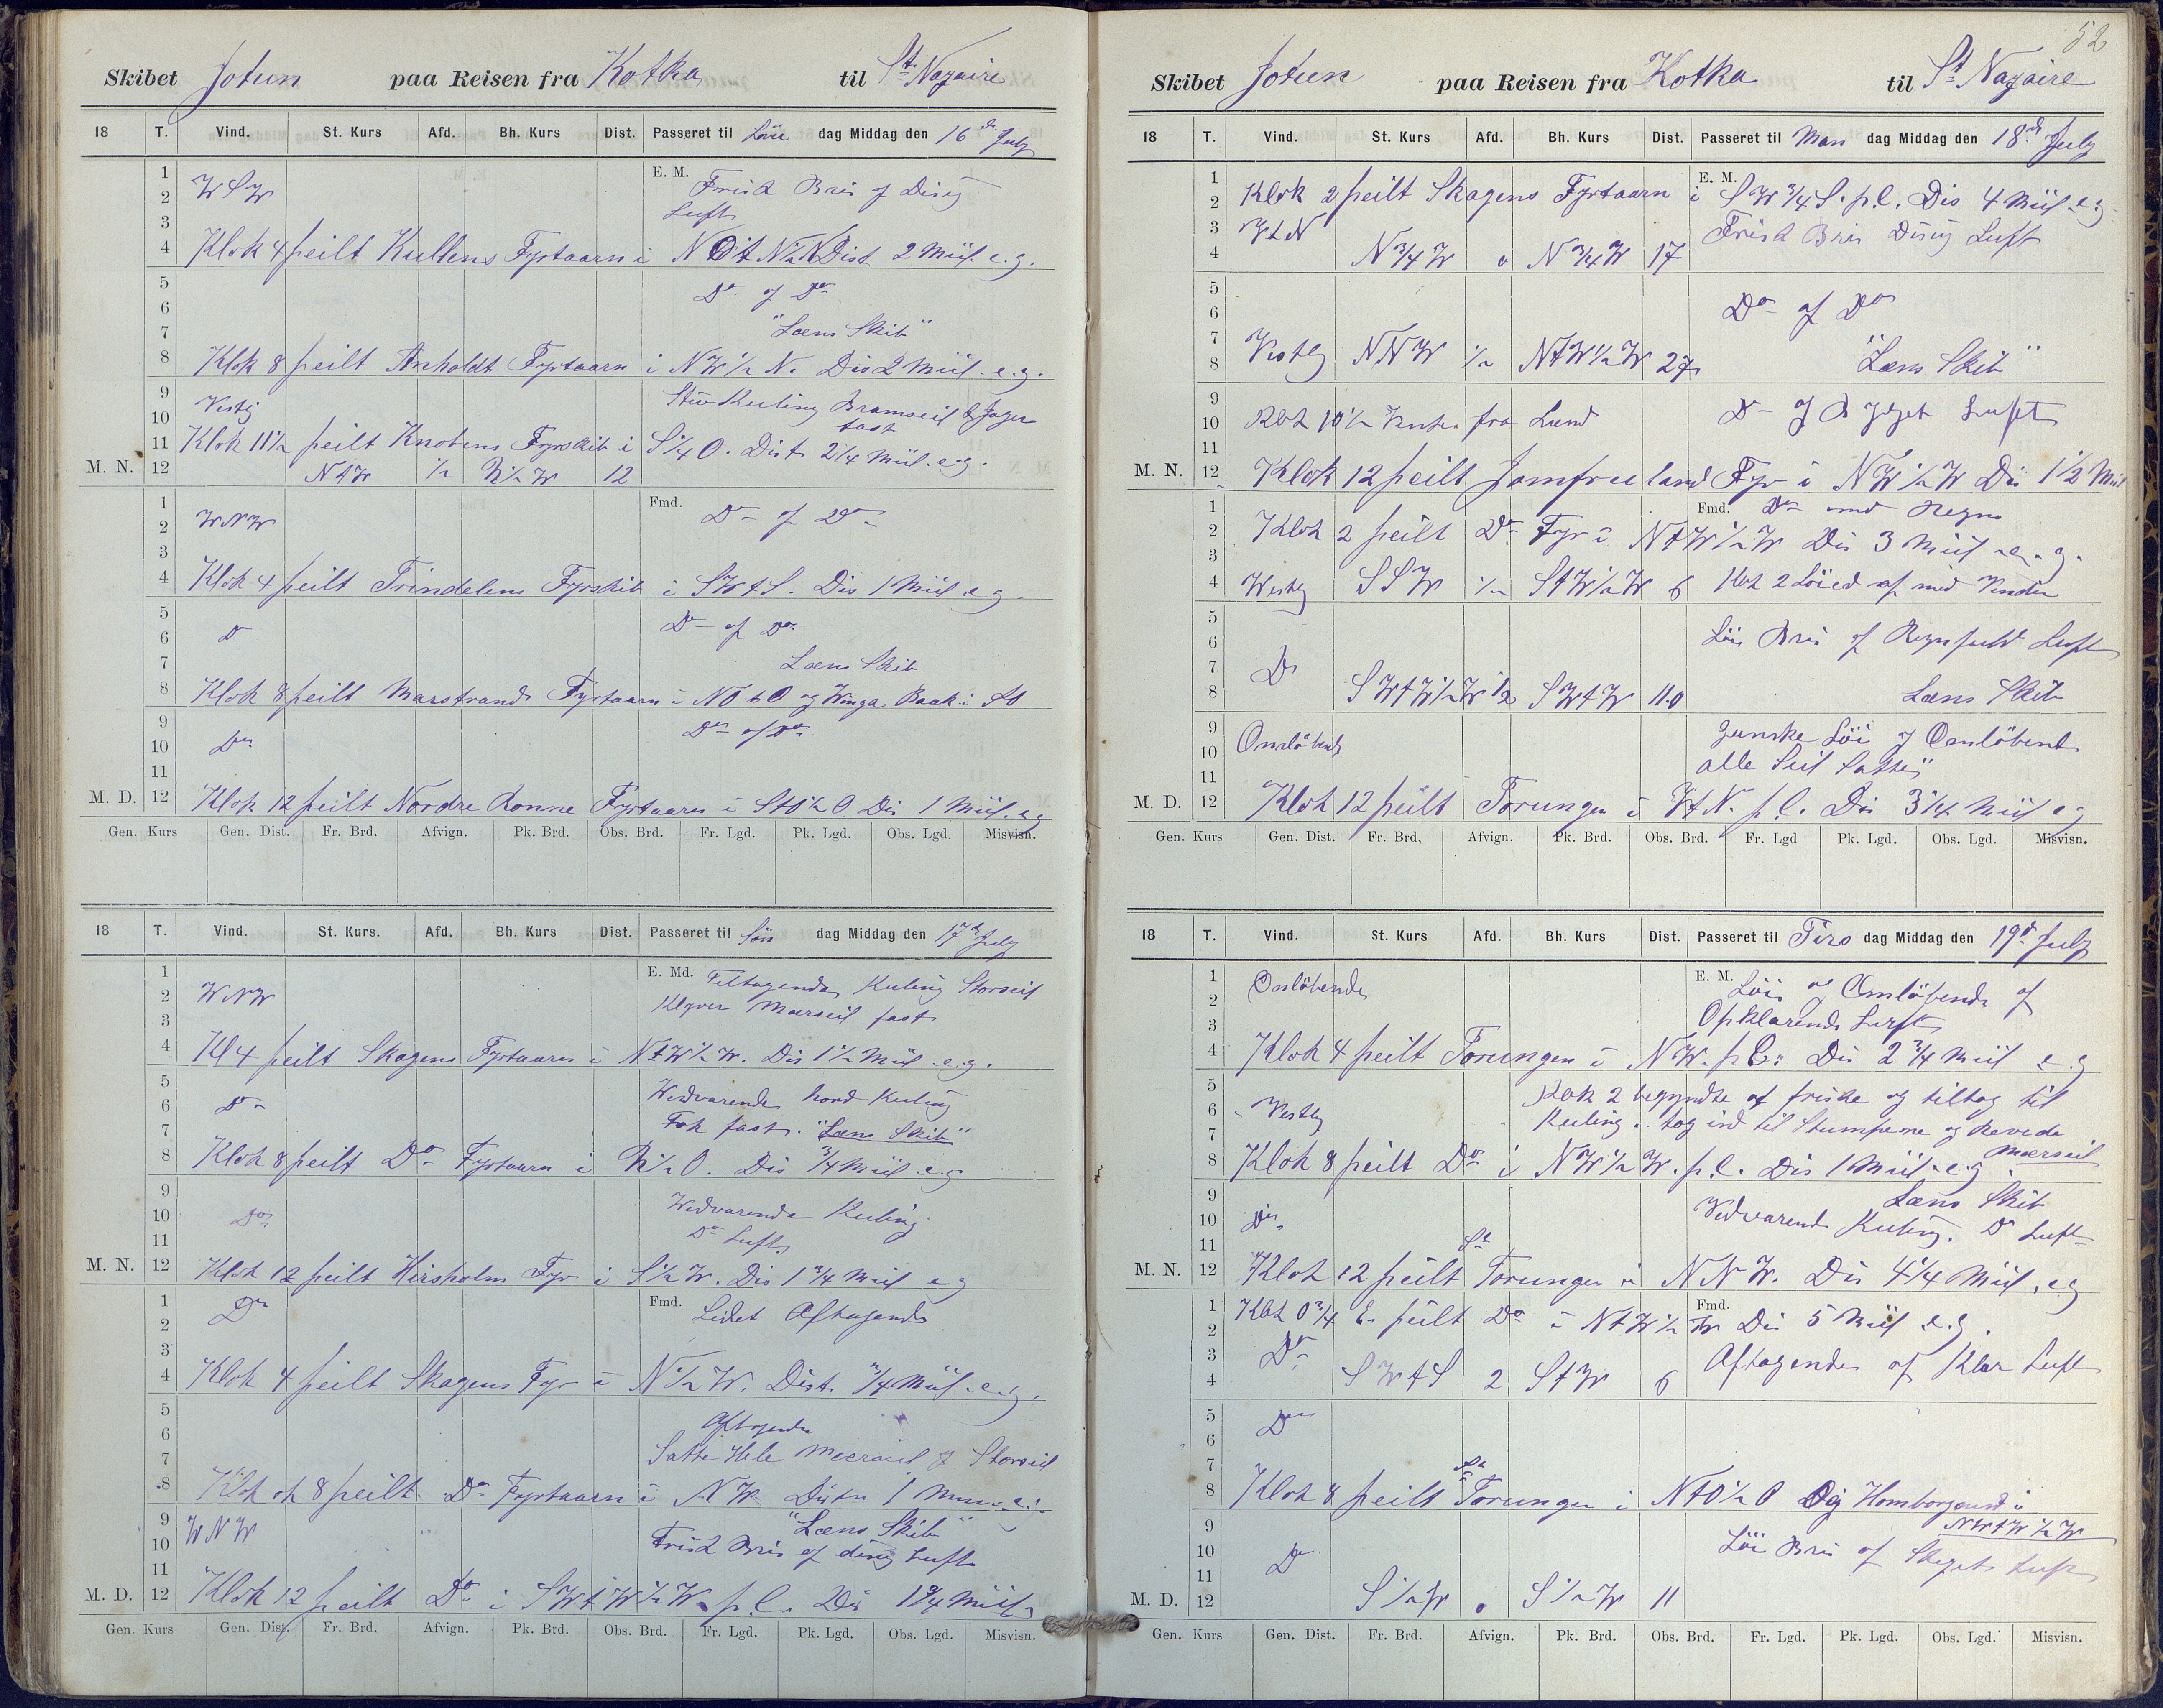 Skibet Jotun paa Reisen fra Kotka til St Nazaire
18 T. Vind. St. Kurs Afd. Bh. Kurs Dist. Passeret til Löve dag Middag den 16de July
1 E. M. Frisk Bris og Disig
2 WSW Luft
3
4 Klok 4 peilt Kullens Fyrtaarn i NOtN½N Dist 2 Miil e.g.
5 Do og Do
6
7 "Læns Skib"
8 Klok 8 peilt Anholdt Fyrtaarn i NW½N. Dis 2 Miil. e.g.
9 Stiv Kuling Bramseil & Jager
10 Vestlig fast
11 Klok 11½ peilt Knobens Fyrskib i S¼O. Dist 2¼ Miil. e.g.
M. N. 12 NtW ½ N½W 12
1 Fmd. Do og Do
2 WNW
3
4 Klok 4 peilt Trindelens Fyrskib i SWtS. Dis 1 Miil e.g.
5 Do og Do
6 Do
7 Læns Skib
8 Klok 8 peilt Marstrands Fyrtaarn i NOtO og Winga Baak i
9 Do og Do
10 Do
11
M. D. 12 Klok 12 peilt Nordre Rönne Fyrtaarn i StO½O Dis 1 Miil. e.g
Gen. Kurs Gen. Dist. Fr. Brd. Afvign. Pk. Brd. Obs. Brd. Fr. Lgd. Pk. Lgd. Obs. Lgd. Misvisn.
18 T. Vind. St. Kurs. Afd. Bh. Kurs Dist. Passeret til Sön dag Middag den 17de July
1 E. Md. Tiltagende Kuling Storseil
2 WNW Klyver Mærseil fast
3
4 Kl 4 peilt Skagens Fyrtaarn i NtW½W. Dis 1½ Miil e.g.
5 Vedvarende haard Kuling
6 Do
7 Fok fast. "Læns Skib"
8 Klok 8 peilt Do Fyrtaarn i N½O. Dis ¾ Miil e.g
9
10 Do Vedvarende Kuling
11 Do Luft
M. N. 12 Klok 12 peilt Hirsholm Fyr i S½W. Dis 1¾ Miil e g
1 Do Fmd. Lidet Aftagende
2
3
4 Klok 4 peilt Skagens Fyr i N½W. Dist ¾ Miil. e.g.
5
6 Aftagende
7 Satte Hele Mærseil & Storseil
8 Klok 8 peilt Do Fyrtaarn i NW 1
9 WNW "Læns Skib"
10 Frisk Bris og disig Luft
11
M. D. 12 Klok 12 peilt Do i SWtW½W. p.l. Dis 1¾ Miil
Gen. Kurs Gen. Dist. Fr. Brd. Afvign. Pk. Brd. Obs. Brd. Fr. Lgd. Pk. Lgd. Obs. Lgd. Misvisn.
52
Skibet Jotun paa Reisen fra Kotka til St Nazaire
18 T. Vind. St. Kurs Afd. Bh. Kurs Dist. Passeret til Man dag Middag den 18de July
1 E. M.
2 Klok 2 peilt Skagens Fyrtaarn i SW¾S. p.l. Dis 4 Miil e.g.
3 VtN Frisk Bris Disig Luft
4 N¾W 0 N¾W 17
5
6 Do og Do
7
8 Vestlig NNW ½ NtW½W 27 "Læns Skib"
9
10 Klok 10½ fra Land Do og Luft
11
M. N. 12 Klok 12 peilt Jomfruland Fyr i NW½W Dis 1½ Miil
1 Fmd. Do med Regn
2 Klok 2 peilt Do Fyr i NtW½W Dis 3 Miil e.g.
3
4 Westlig SSW ½ StW½W 6 Klok 2 Löied af med Vinden
5
6 Löi Bris og Regnfuld Luft
7 Do
8 SWtW½W ½ SWtW 11.0 Læns Skib
9 ganske Löi og Omlöbende
10 Omlöbende alle Seil Satte
11
M. D. 12 Klok 12 peilt Torungen i VtN. p.l. Dis 3¼ Miil e g
Gen. Kurs Gen. Dist. Fr. Brd, Afvign. Pk. Brd. Obs. Brd. Fr. Lgd Pk. Lgd. Obs. Lgd. Misvisn.
18 T. Vind. St. Kurs Afd. Bh. Kurs Dist. Passeret til Tirs dag Middag den 19d July
1 Omlöbende E. M. Löi og Omlöbende og
2 Opklarende Luft
3
4 Klok 4 peilt Torungen i NW. p.l. Dis 2¾ Miil e.g
5 Klok 2 begyndte at friske og tiltog til
6 Vestlig Kuling. tog ind til Stumperne og Revede
7 Mærseil
8 Klok 8 peilt Do i NW½W. p.l. Dis 1 Miil e.g
9 Læns Skib
10 Do Vedvarende Kuling. Do Luft
11
M. N. 12 Klok 12 peilt St Torungen i NNW. Dis 4¼ Miil. e g
1 Fmd.
2 Klok 0¾ E. peilt Do i NtW½W Dis 5 Miil e.g.
3 Do Aftagende og Klar Luft
4 SWtS 2 StW 6
5 Do
6
7
8 Klok 8 peilt St Torungen i NtO½O Og Homborgsund i
9 NWtW½W
10 Do Löi Bris og Skyet Luft
11
M. D. 12 S½W 0 S½W 11
Gen. Kurs Gen. Dist. Fr. Brd. Afvign. Pk. Brd. Obs. Brd. Fr. Lgd. Pk. Lgd. Obs. Lgd. Misvisn.